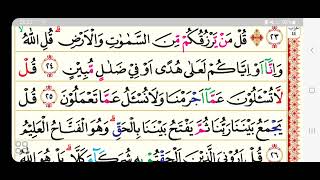 ٢٣ قُلْ مَنْ يَّرْزُقُكُمْ مِّنَ السَّمٰوٰتِ وَالْاَرْضِۗ قُلِ اللّٰهُ
وَاِنَّآ اَوْ اِيَّاكُمْ لَعَلٰى هُدًى اَوْ فِيْ ضَلٰلٍ مُّبِيْنٍ ٢٤ قُلْ
لَّا تُسْـَٔلُوْنَ عَمَّآ اَجْرَمْنَا وَلَا نُسْـَٔلُ عَمَّا تَعْمَلُوْنَ ٢٥ قُلْ
يَجْمَعُ بَيْنَنَا رَبُّنَا ثُمَّ يَفْتَحُ بَيْنَنَا بِالْحَقِّۗ وَهُوَ الْفَتَّاحُ الْعَلِيْمُ
٢٦ قُلْ اَرُوْنِيَ الَّذِيْنَ اَلْحَقْتُمْ بِهٖ شُرَكَاۤءَ كَلَّاۗ بَلْ هُوَ اللّٰهُ